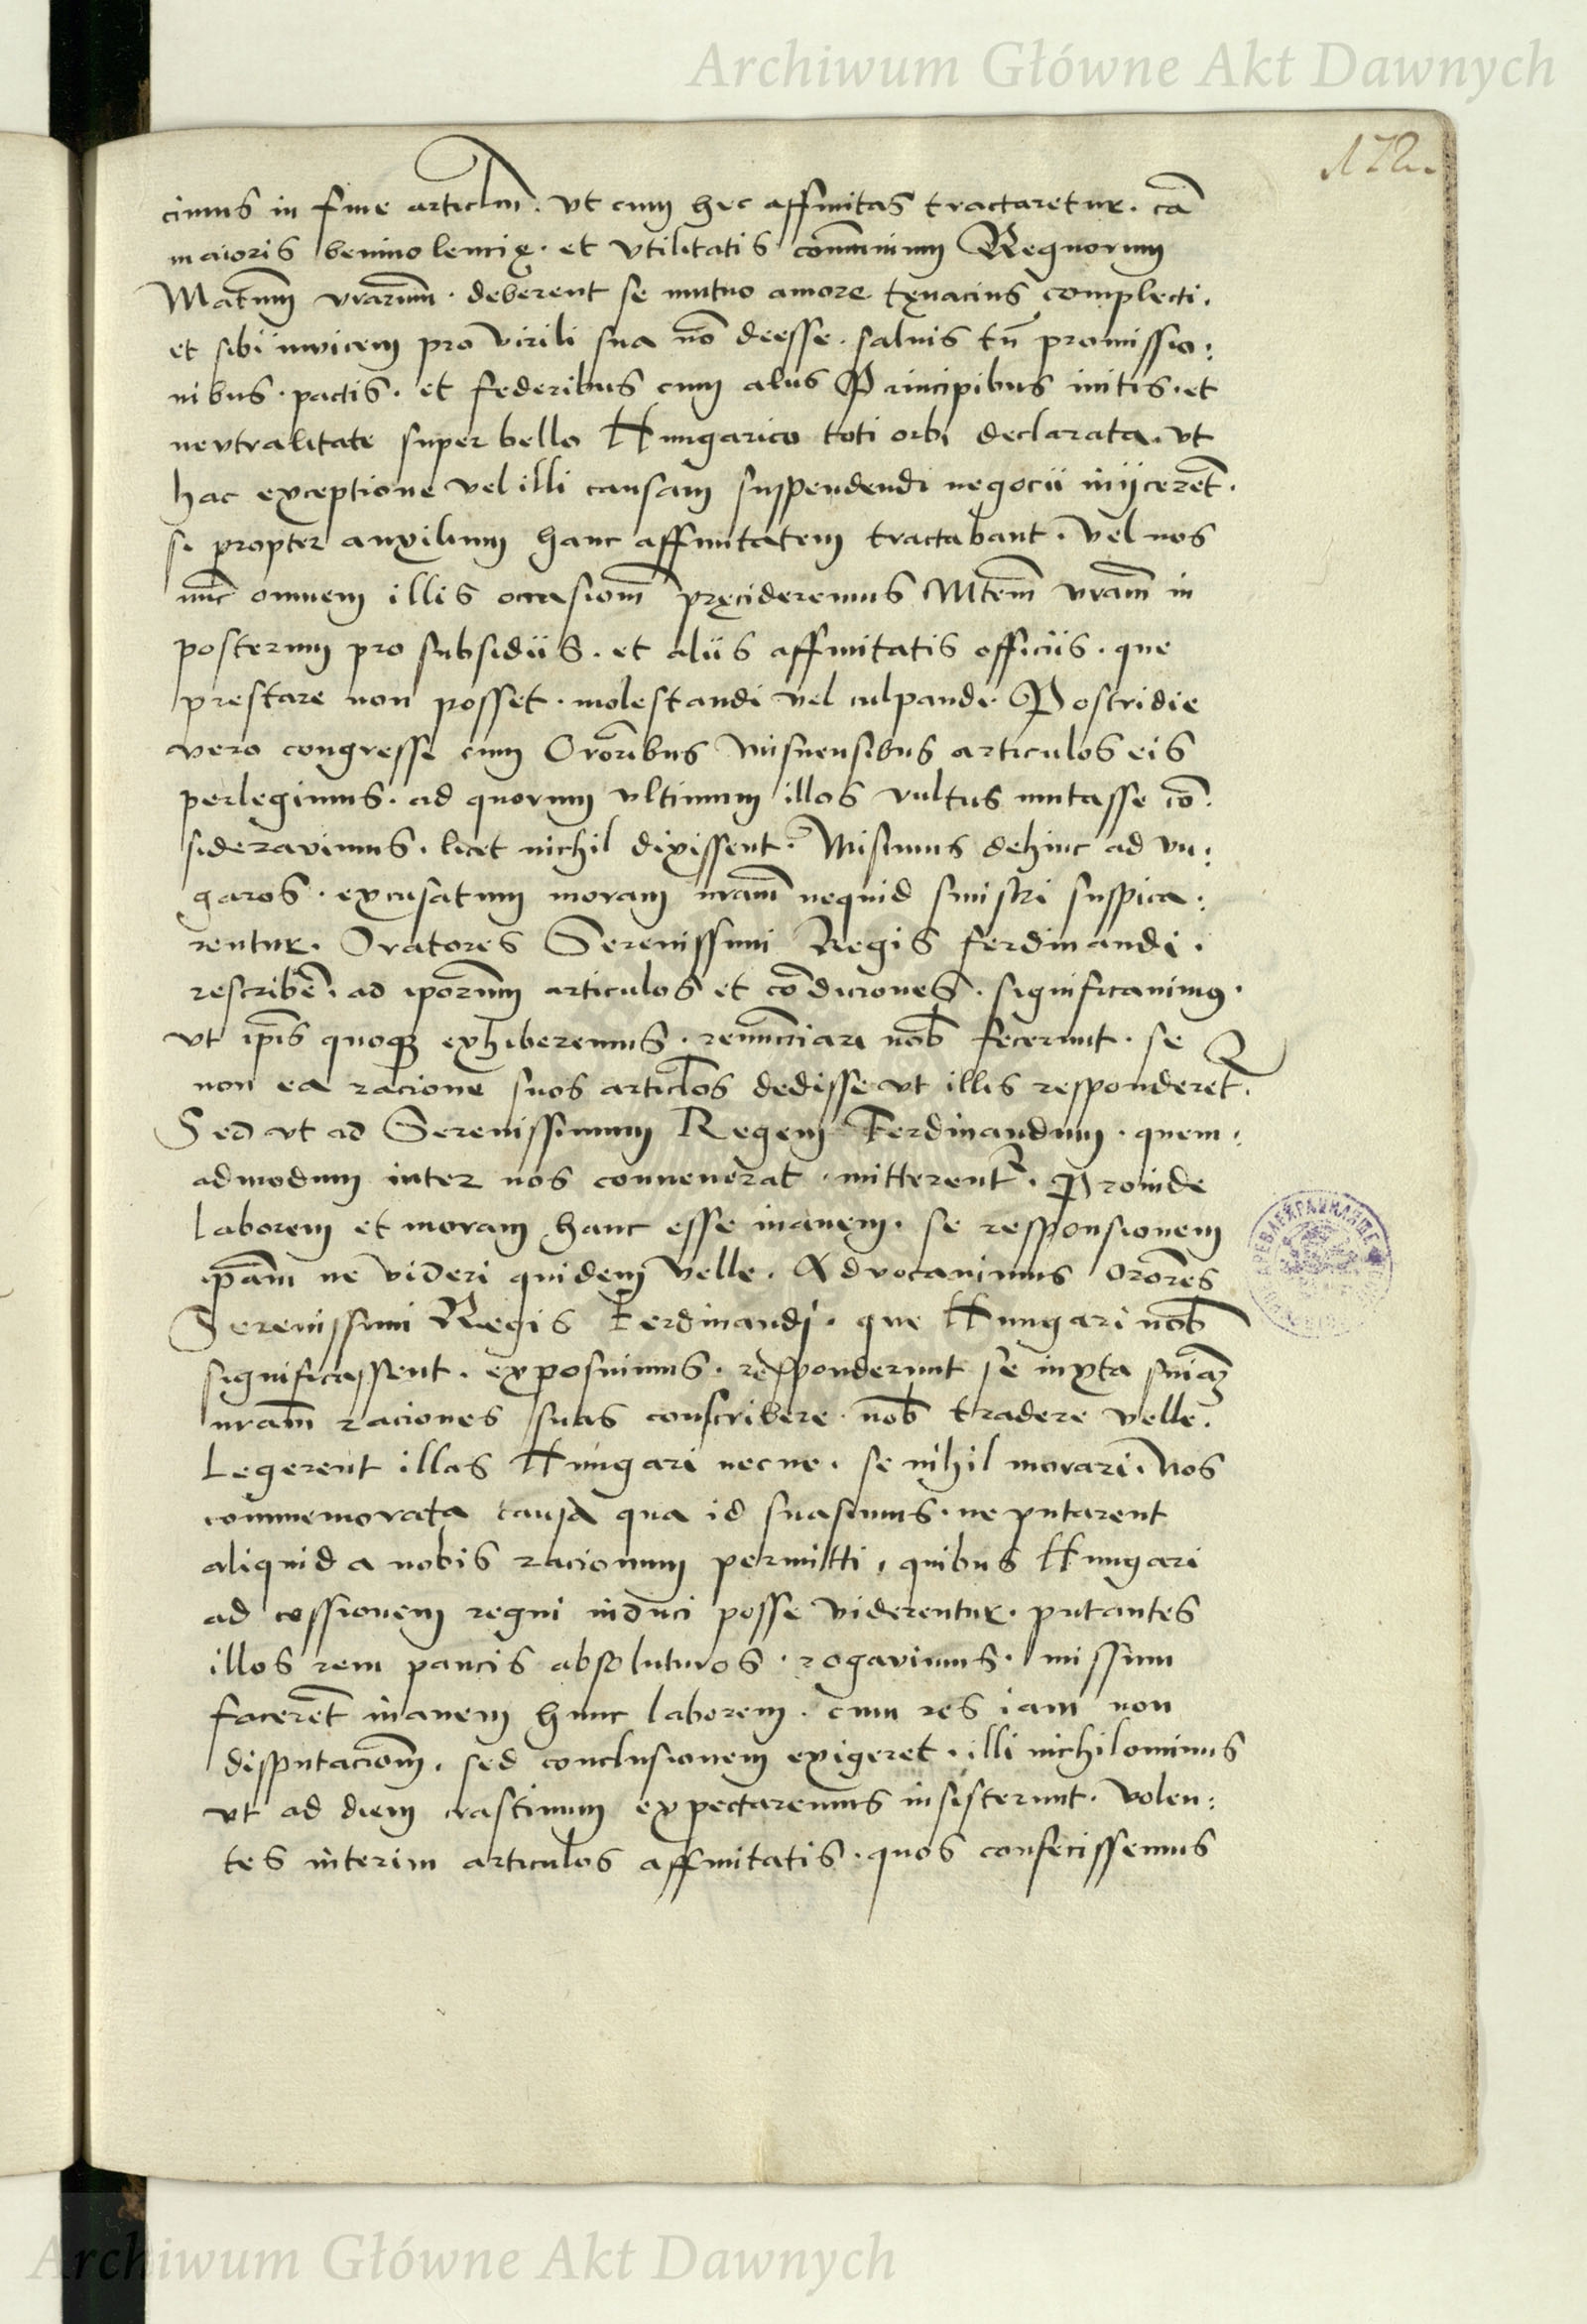 Archiwum Główne Akt Dawnych
172.
cimus in fine articlm̄. vt cum hec affinitas tractaretur. cā
maioris beniuolencię. et vtilitatis com̄unium Regnorum
Matum̄ vrarum̄. deberent se mutuo amore tęnacius complecti.
et sibi inuicem pro virili sua nō deesse. saluis tn̄ promissio:
nibus. pactis. et federibus cum alijs Principibus initis. et
neutralitate super bello Hungarico toti orbi declarata. vt
hac exceptione vel illi causam suspendendi negocii inijcerēt.
si propter auxilium hanc affinitatem tractabant. Vel nos
nūc omnem illis occasiom̄ pręcideremus Mtem̄ vram̄ in
posterum pro subsidiis. et aliis affinitatis officiis. que
prestare non posset. molestandi vel culpandi. Postridie
vero congressi cum Orōribus Misnensibus articulos eis
perlegimus. ad quorum vltimum illos vultus mutasse cō:
siderauimus. licet nichil dixissent. Misimus dehinc ad vn:
garos. excusatum moram nram̄ nequid sinistri suspica:
rentur. Oratores Serenissimi Regis Ferdinandi.
rescribēn. ad ipōrum articulos et cōdiciones. significauimus.
vt ip̄is quoque exhiberemus. renun̄ciari nob̄ fecerunt. se
non ea racione suos articlos dedisse vt illis responderet̄.
Sed vt ad Serenissimum Regem Ferdinandum. quem:
admodum inter nos conuenerat. mitterent̄. Proinde
laborem et moram hanc esse inanem. se responsionem
ip̄am ne videri quidem velle. Aduocauimus Orōres
Serenissimi Regis Ferdinandi. que Hungari nob̄
significassent. exposuimus. responderunt se iuxta sniam̄
nram̄ raciones suas conscribere. nob̄ tradere velle.
Legerent illas Hungari necne. se nihil morari. Nos
commemorata causa qua id suasimus. ne putarent
aliquid a nobis racionum permitti, quibus Hungari
ad cessionem regni induci posse viderentur. putantes
illos rem paucis absoluturos. rogauimus. missum
facerēt inanem hunc laborem. cum res iam non
disputaciom̄. sed conclusionem exigeret. illi nichilominus
vt ad diem crastinum expectaremus insisterunt. Volen:
tes interim articulos affinitatis. quos confecissemus
Archiwum Główne Akt Dawnych